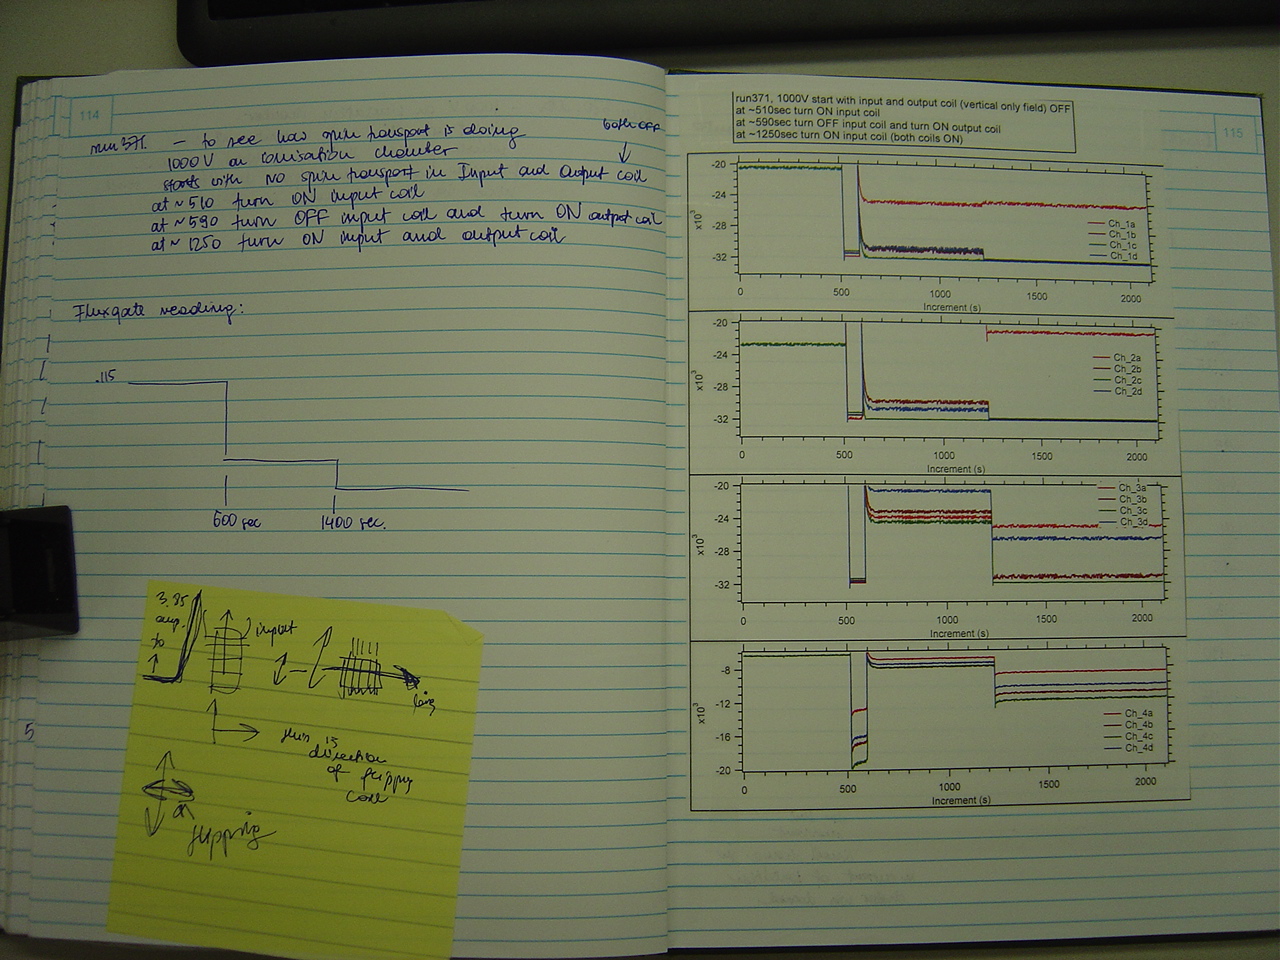 114
run 371. — to see how spin transport is doing
1000V on ionisation chamber
both OFF
starts with NO spin transport in Input and Output coil
at ~ 510 turn ON input coil
at ~ 590 turn OFF input coil and turn ON output coil
at ~ 1250 turn ON input and output coil
Fluxgate reading:
.115
600 sec
1400 sec.
3.85
amp.
to
input
this is
direction
of flipping
coil
flipping
5
115
run371, 1000V start with input and output coil (vertical only field) OFF
at ~510sec turn ON input coil
at ~590sec turn OFF input coil and turn ON output coil
at ~1250sec turn ON input coil (both coils ON)
-20
-24
-28
-32
x10³
Ch_1a
Ch_1b
Ch_1c
Ch_1d
0 500 1000 1500 2000
Increment (s)
-20
-24
-28
-32
x10³
Ch_2a
Ch_2b
Ch_2c
Ch_2d
0 500 1000 1500 2000
Increment (s)
-20
-24
-28
-32
x10³
Ch_3a
Ch_3b
Ch_3c
Ch_3d
0 500 1000 1500 2000
Increment (s)
-8
-12
-16
-20
x10³
Ch_4a
Ch_4b
Ch_4c
Ch_4d
0 500 1000 1500 2000
Increment (s)